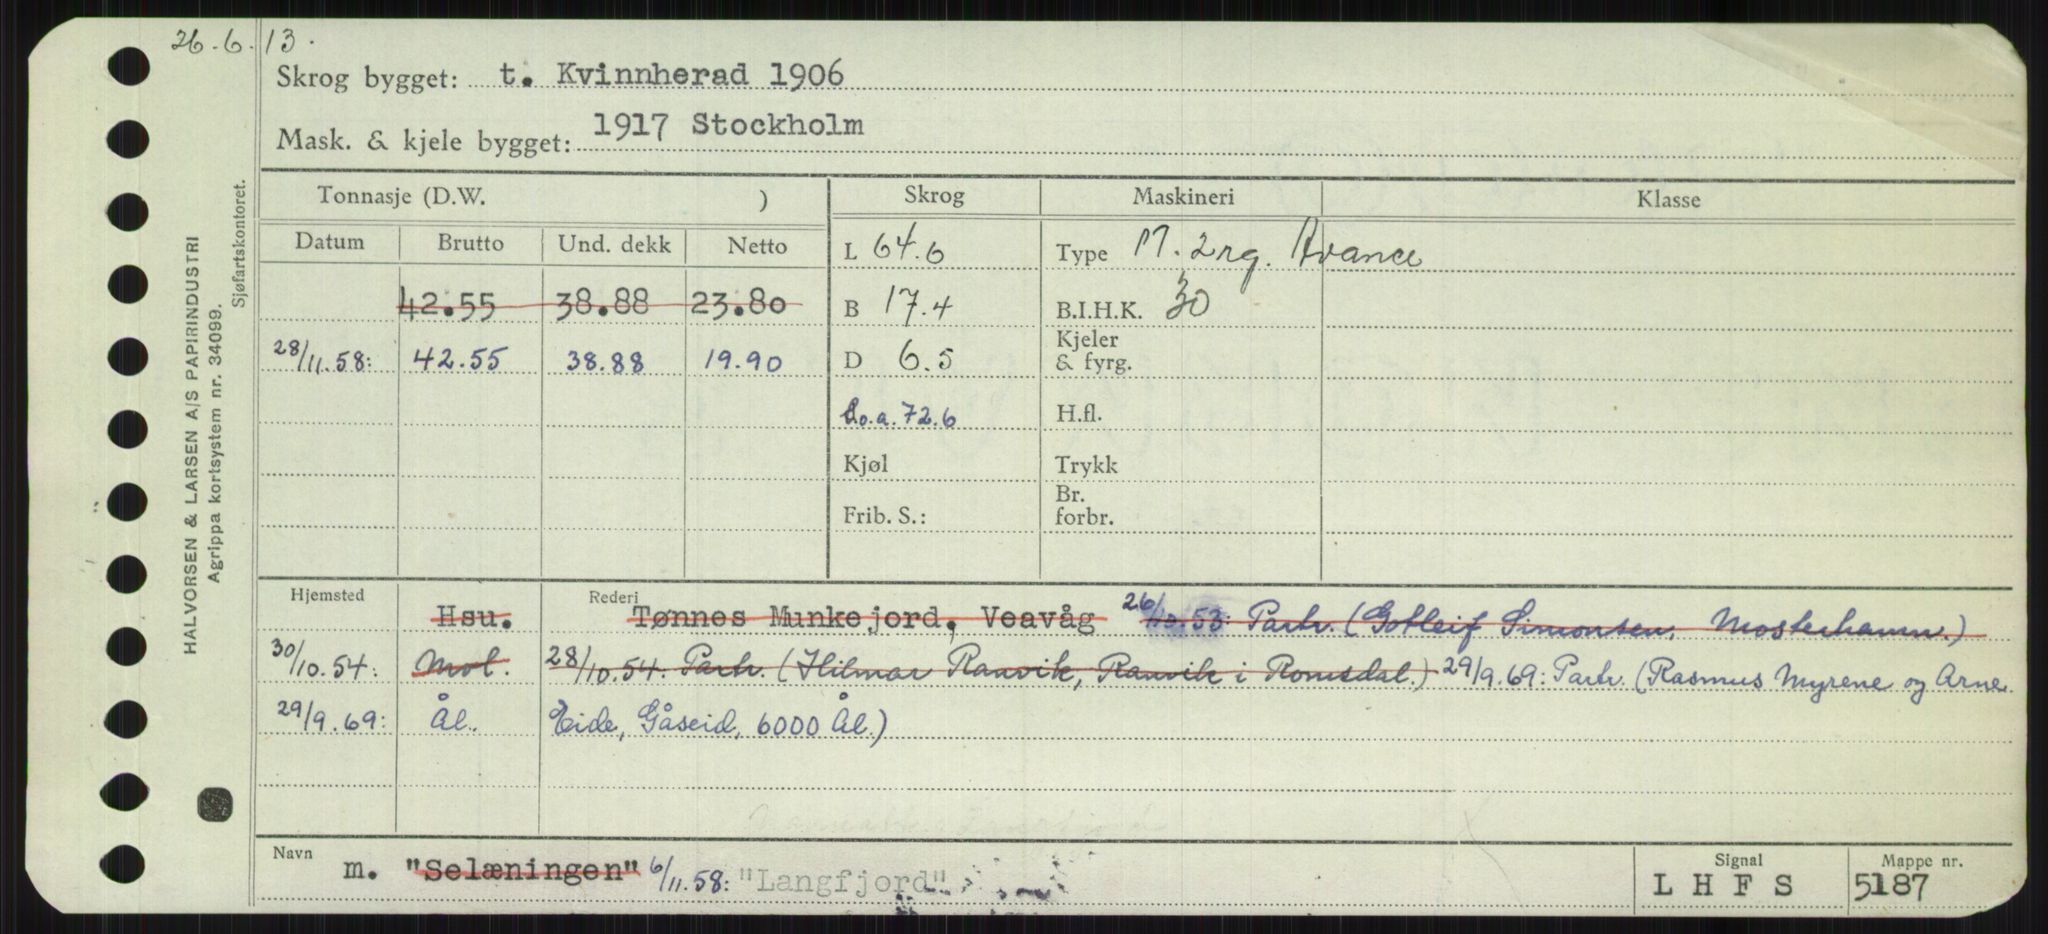 26.6.13.
Skrog bygget: t. Kvinnherad 1906
Mask. & kjele bygget: 1917 Stockholm
HALVORSEN & LARSEN A/S PAPIRINDUSTRI
Agrippa kortsystem nr. 34099.
Sjøfartskontoret.
Tonnasje (D.W. ) Skrog Maskineri Klasse
Datum Brutto Und. dekk Netto
L 64.6 Type M. 2rg. Avance
42.55 38.88 23.80 B 17.4 B.I.H.K. 30
28/11.58: 42.55 38.88 19.90 D 6.5 Kjeler & fyrg.
L.o.a. 72.6 H.fl.
Kjøl Trykk
Frib. S.: Br. forbr.
Hjemsted Rederi
Hsu. Tønnes Munkejord, Veavåg 26/10.53: Partr. (Gotleif Simonsen, Mosterhamn.)
30/10.54: Mol. 28/10.54: Partr. (Hilmar Ranvik, Ranvik i Romsdal.) 29/9.69: Partr. (Rasmus Myrene og Arne
29/9.69: Ål. Eide, Gåseid, 6000 Ål.)
Navn Signal Mappe nr.
m. "Selæningen" 6/11.58: "Langfjord" L H F S 5187